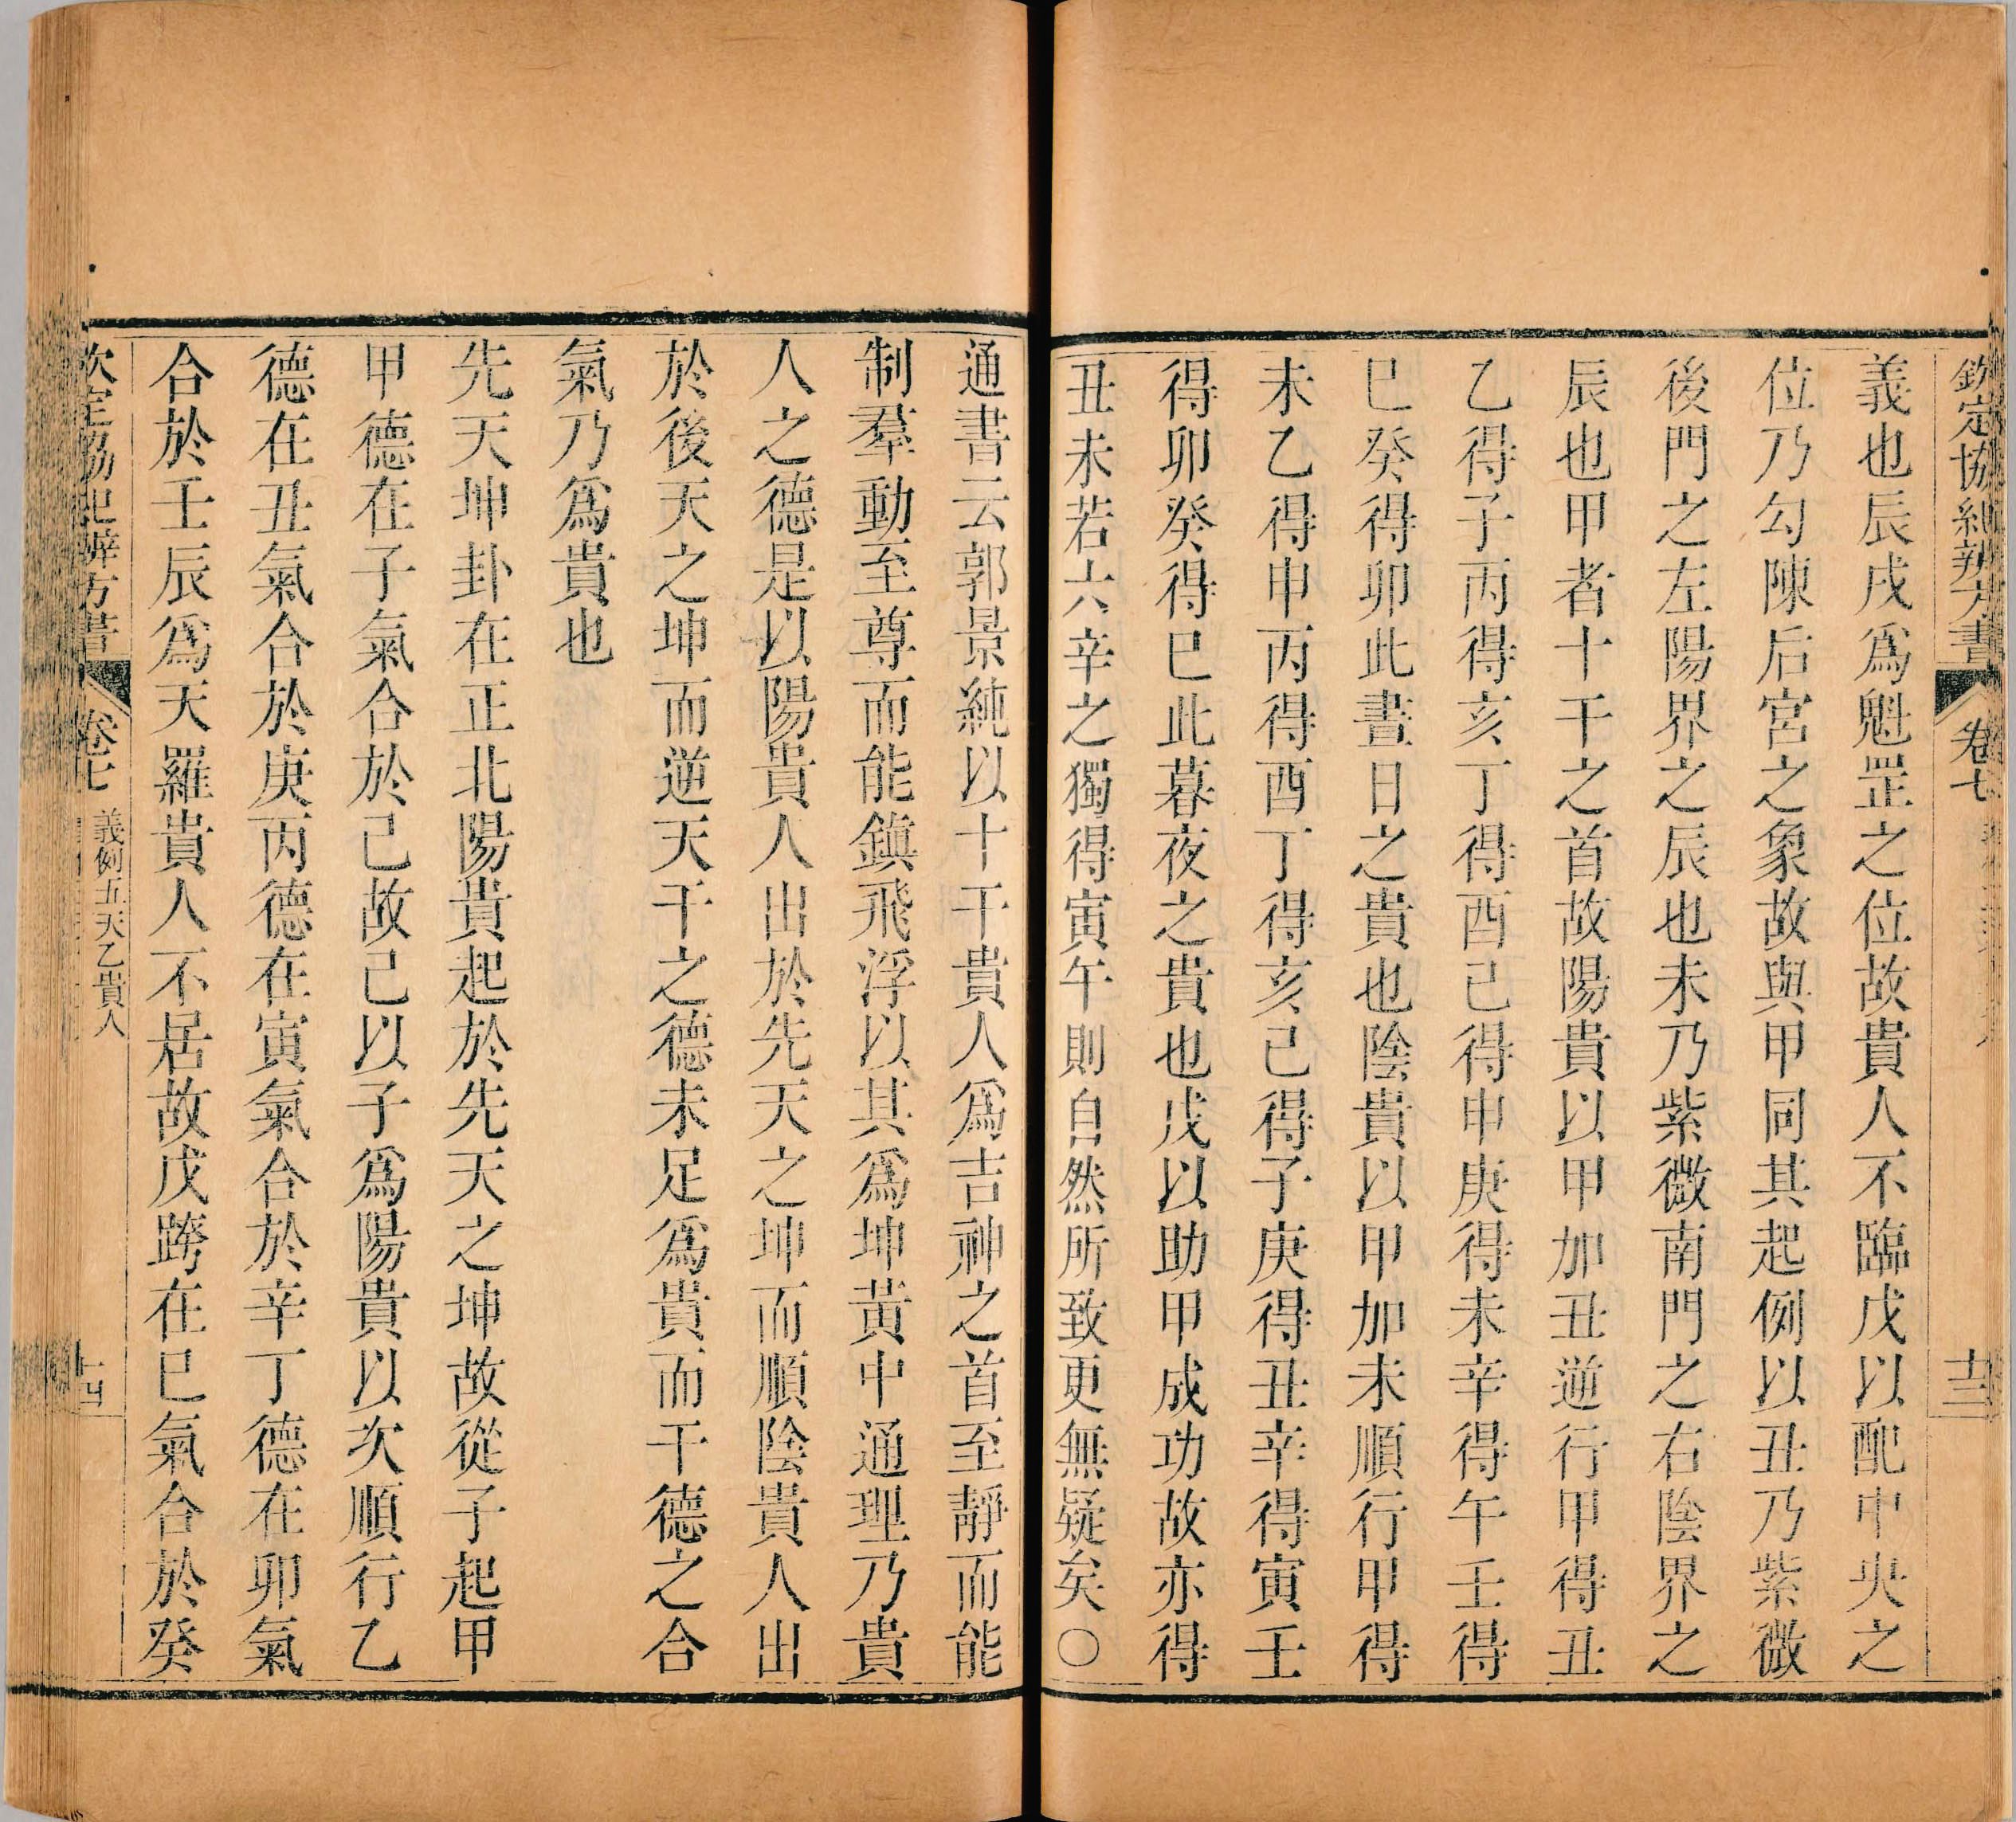 欽定協紀辨方書 卷七 十三
義也辰戌爲魁罡之位故貴人不臨戊以配中央之
位乃勾陳后宮之象故與甲同其起例以丑乃紫微
後門之左陽界之辰也未乃紫微南門之右陰界之
辰也甲者十干之首故陽貴以甲加丑逆行甲得丑
乙得子丙得亥丁得酉己得申庚得未辛得午壬得
巳癸得卯此晝日之貴也陰貴以甲加未順行甲得
未乙得申丙得酉丁得亥己得子庚得丑辛得寅壬
得卯癸得巳此暮夜之貴也戊以助甲成功故亦得
丑未若六辛之獨得寅午則自然所致更無疑矣〇
通書云郭景純以十干貴人爲吉神之首至靜而能
制羣動至尊而能鎮飛浮以其爲坤黃中通理乃貴
人之德是以陽貴人出於先天之坤而順陰貴人出
於後天之坤而逆天干之德未足爲貴而干德之合
氣乃爲貴也
先天坤卦在正北陽貴起於先天之坤故從子起甲
甲德在子氣合於己故己以子爲陽貴以次順行乙
德在丑氣合於庚丙德在寅氣合於辛丁德在卯氣
合於壬辰爲天羅貴人不居故戊跨在巳氣合於癸
欽定協紀辨方書 卷七 義例五天乙貴人 十四